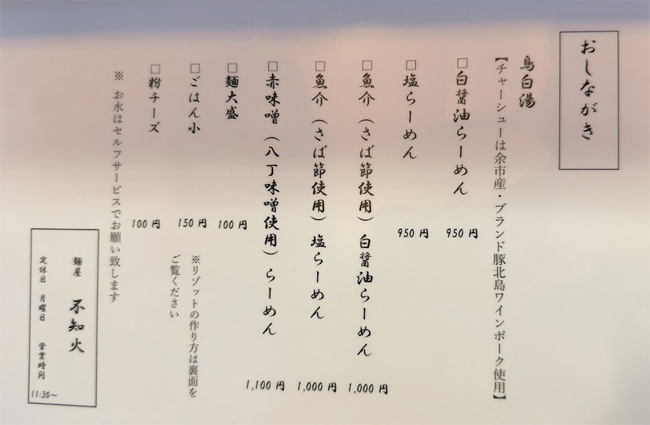 おしながき
鳥白湯
【チャーシューは余市産・ブランド豚北島ワインポーク使用】
□白醤油らーめん 950円
□塩らーめん 950円
□魚介（さば節使用）白醤油らーめん 1,000円
□魚介（さば節使用）塩らーめん 1,000円
□赤味噌（八丁味噌使用）らーめん 1,100円
□麺大盛 100円
□ごはん小 150円
※リゾットの作り方は裏面を
ご覧ください
□粉チーズ 100円
※ お水はセルフサービスでお願い致します
麺屋 不知火
定休日 月曜日 営業時間 11:30〜